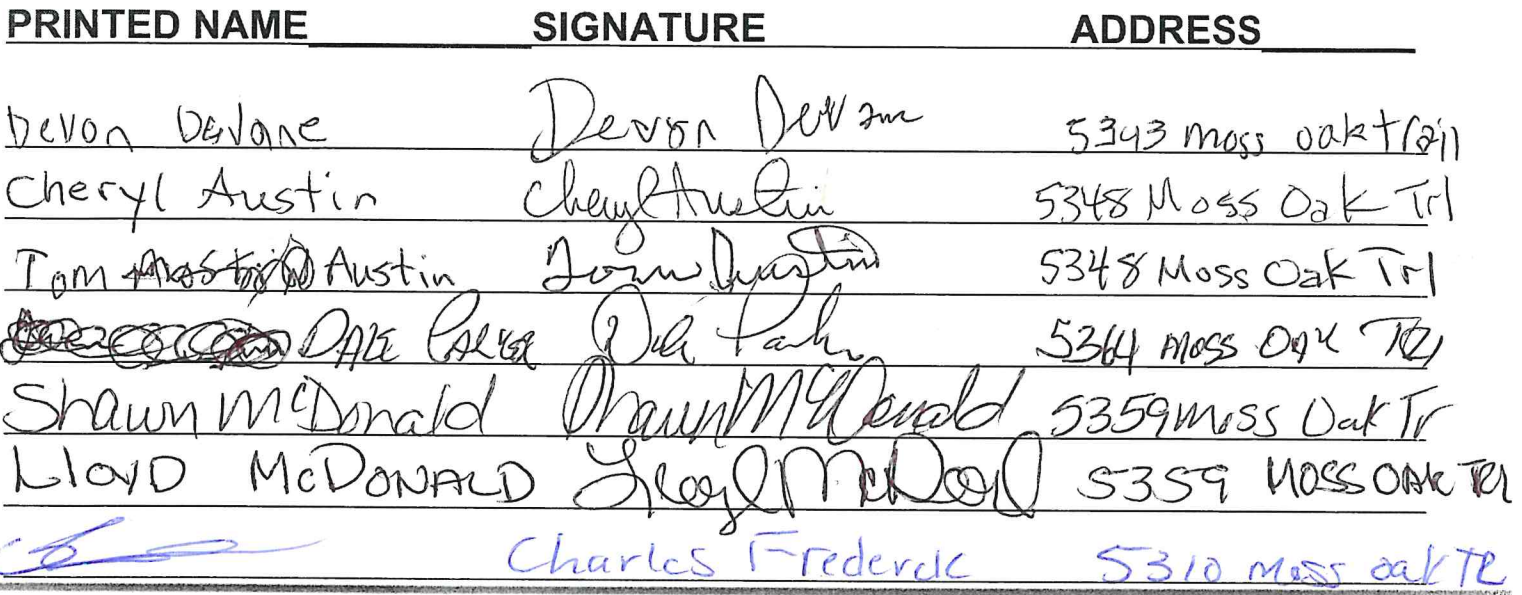 PRINTED NAME SIGNATURE ADDRESS
Devon DeVane Devon DeVane 5343 moss oak trail
Cheryl Austin Cheryl Austin 5348 Moss Oak Trl
Tom Austin Tom Austin 5348 Moss Oak Trl
DALE PARKER Dale Parker 5364 MOSS OAK TRl
Shawn McDonald Shawn McDonald 5359 Moss Oak Tr
LloyD McDONALD Lloyd McDonald 5359 MOSS OAK TRl
Charles Frederick 5310 moss oak TR